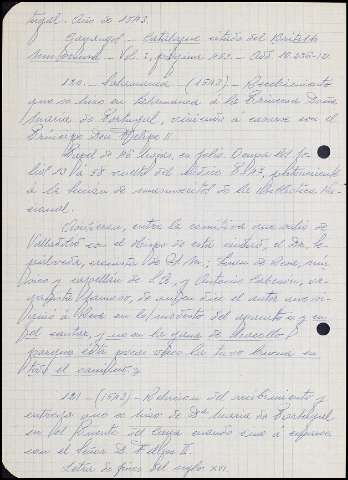 tugal. Año de 1543.
Gayangos. - Catalogue citado del British
Museum. - Vol. I, página 453. - Add. 10.236-10.
120. - Salamanca - (1543). - Recibimiento
que se hizo en Salamanca a la Princesa Doña
María de Portugal, viniendo a casarse con el
Príncipe Don Felipe II.
Papel de 46 hojas, en folio. Ocupa del fo-
lio 13 a 58 vuelto del códice, perteneciente
a la sección de manuscritos de la Biblioteca Na-
cional.
entre la comitiva que salió de
Valladolid con el Obispo de esta ciudad, el Dr. Se-
púlveda, cronista de S. M.; de mú-
sico y capellán de S. A., y Antonio Cabezón, or-
ganista famoso, de quien dice el autor
en la modestia del y en
el cantar, y no en la gana de
porque esta pocas veces la tuvo buena en
todo el camino».
121. - (1543). - Relacion del recibimiento y
entrega que se hizo de Dª María de Portugal
en el Puente de Caya cuando vino a esposar
con el Señor D. Felipe II.
Letra de fines del siglo XVI.